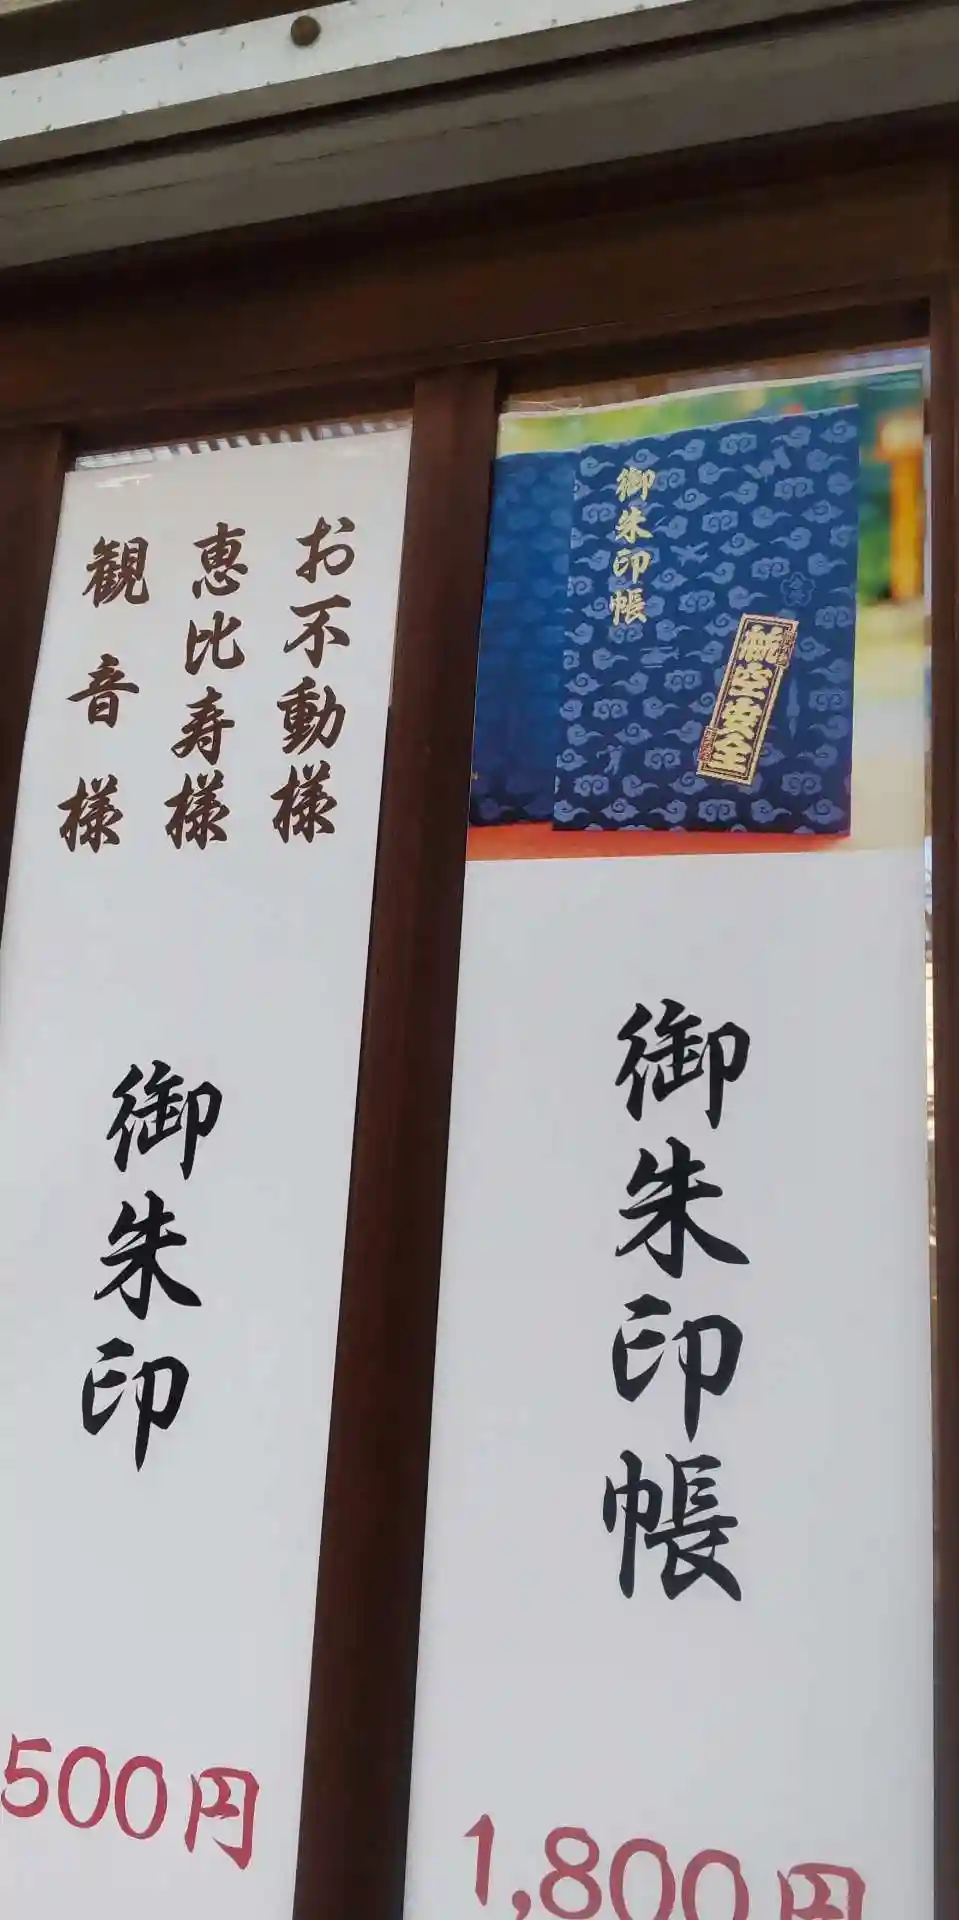 御朱印帳
航空安全
御朱印帳
1,800円
お不動様
恵比寿様
観音様
御朱印
500円